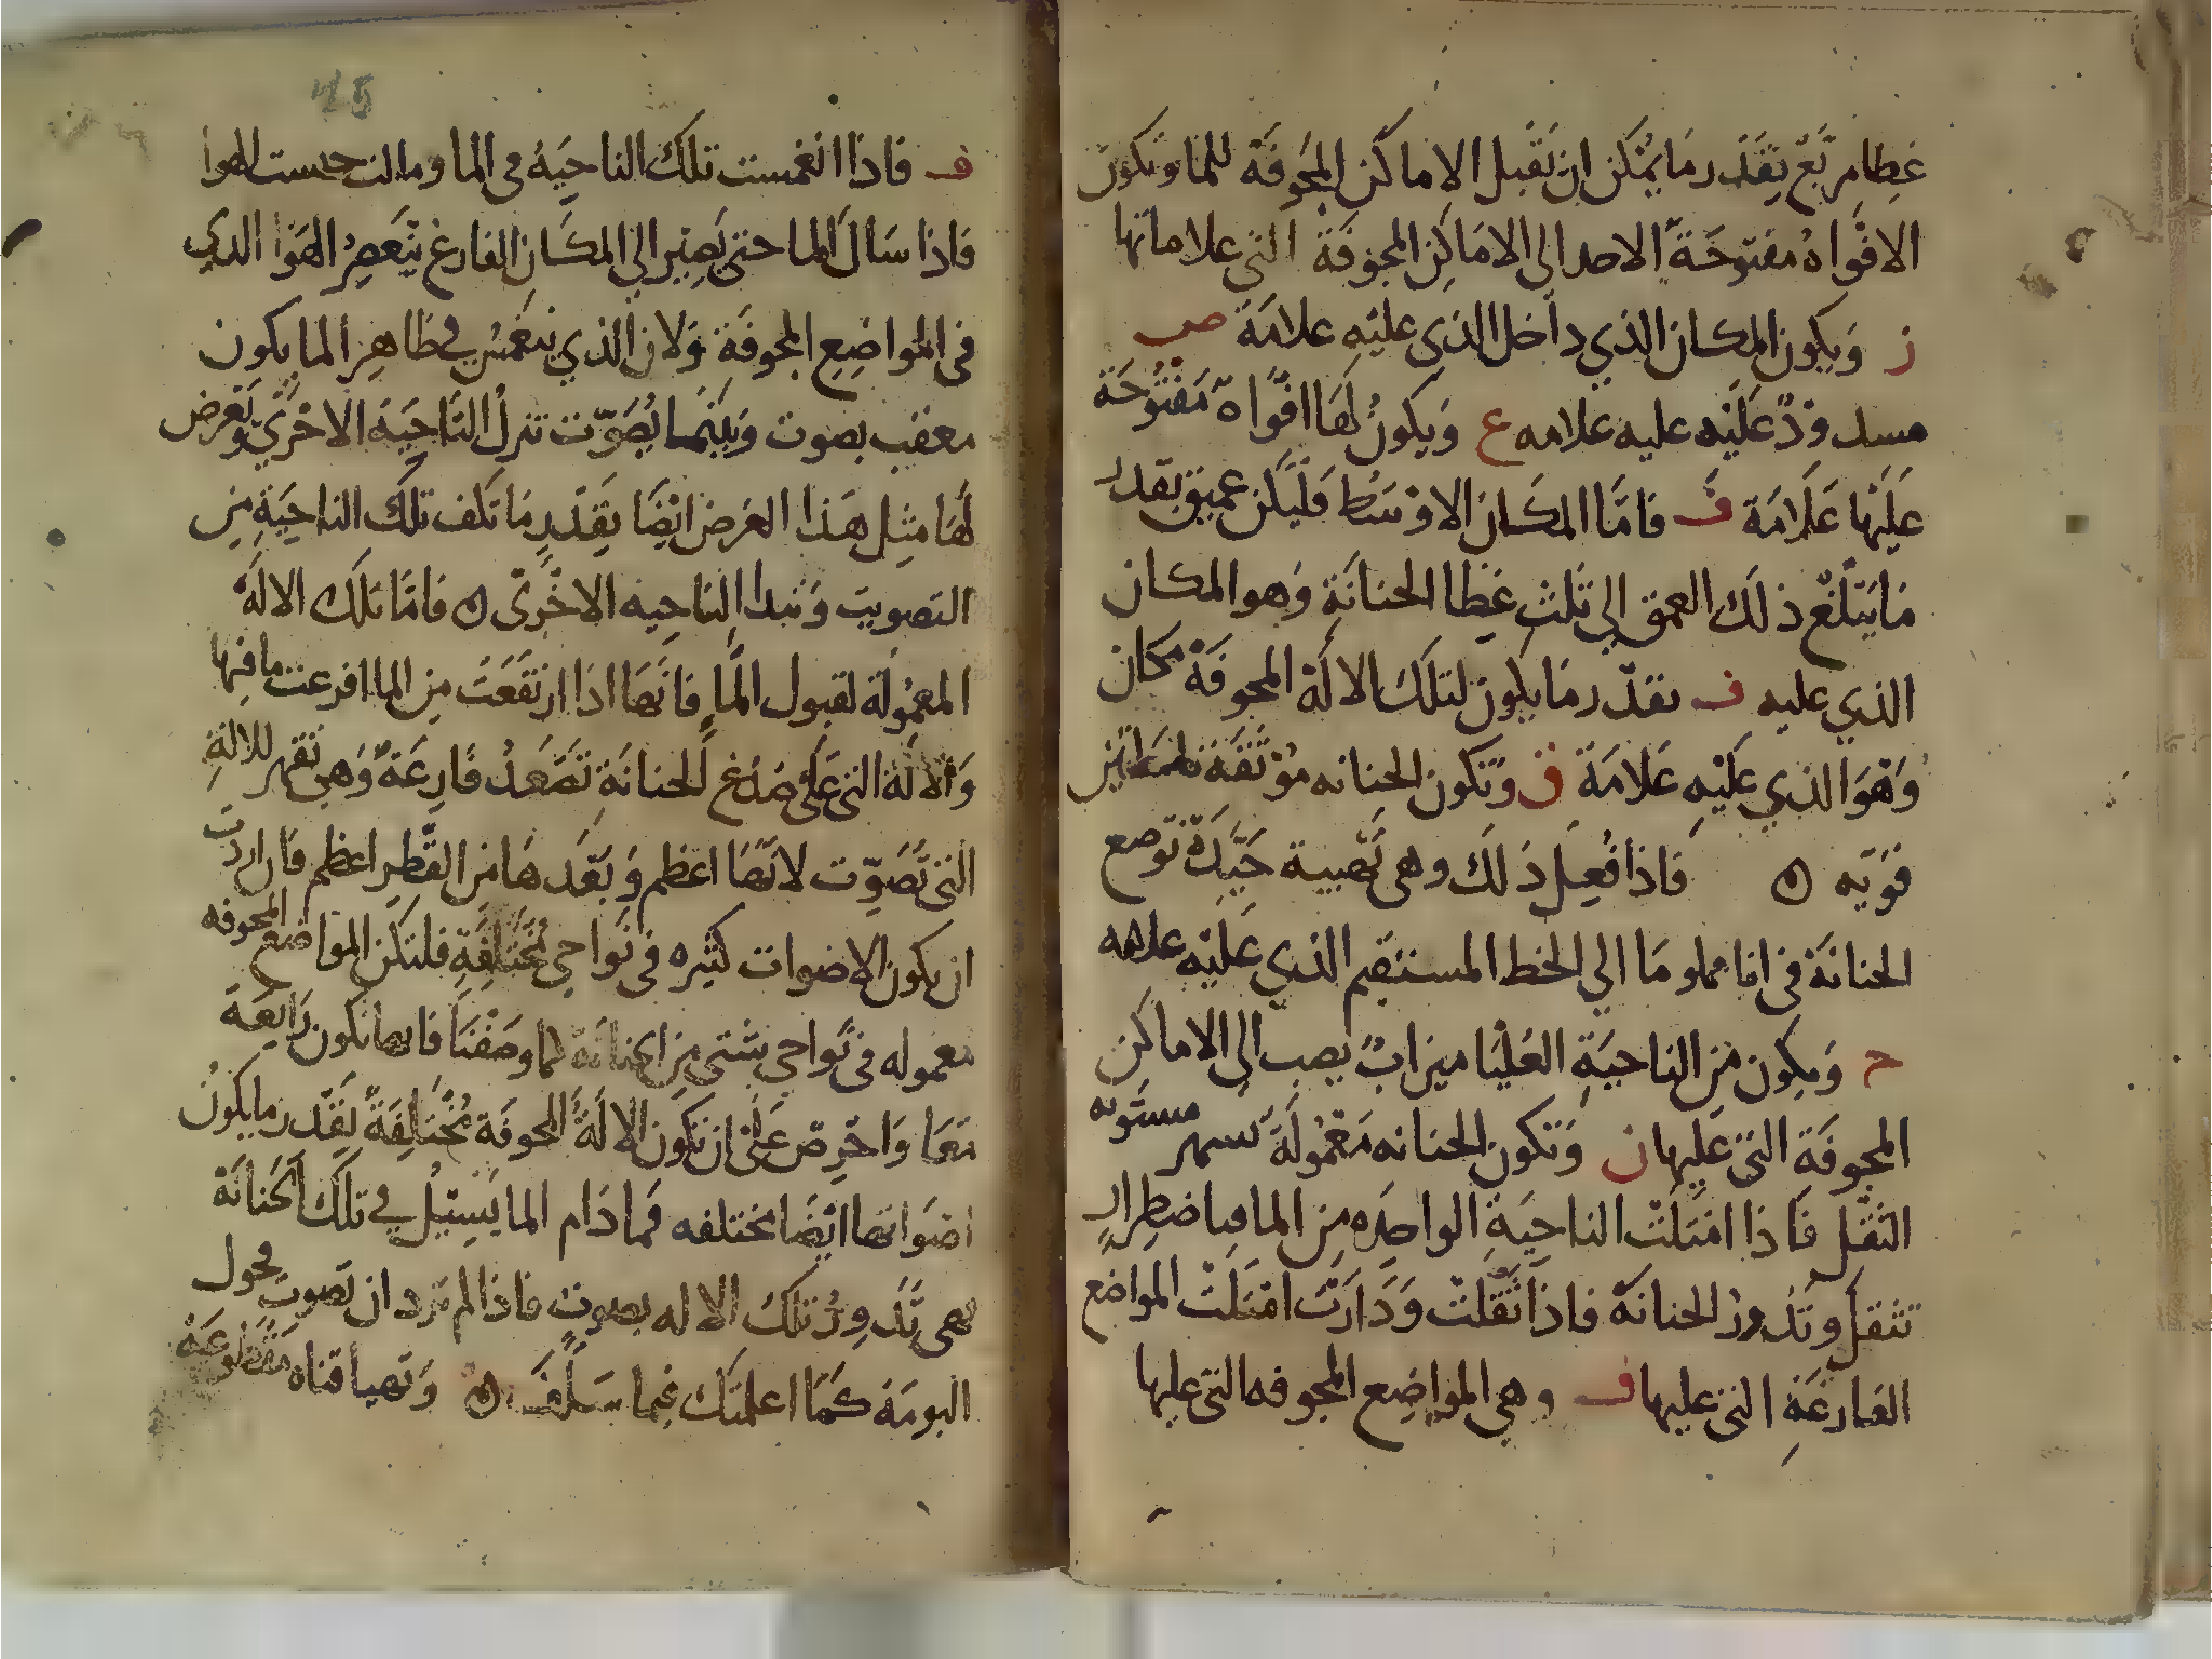 غطا مربع بقدر ما يمكن ان تقبل الاماكن المجوفة للما وتكون
الافواه مفتوحة الاحد الى الاماكن المجوفة التى علاماتها
ز ويكون المكان الذي داخل الذي عليه علامة ص
عليه عليه علامه ع ويكون لها افواه مفتوحة
عليها علامة ف فاما المكان الاوسط فليكن عميق بقدر
ما يبلغ ذلك العمق الي ثلث غطا الحنانة وهو المكان
الذي عليه ف بقدر ما يكون لتلك الالة المجوفة مكان
وهو الذي عليه علامة ق وتكون الحنانه موثقة
قويه ه فاذا فعل ذلك وهى تهيية جيدة توضع
الحنانة فى انا مملو ما الي الخط المستقيم الذي عليه علامه
ح ويكون من الناحية العليا ميزاب يصب الى الاماكن
المجوفة التى عليها ن وتكون الحنانه معمولة مستويه
الثقل فاذا امتلت الناحية الواحده من الما فباضطرار
تثقل وتدور الحنانة فاذا ثقلت ودارت امتلت المواضع
الفارغة التى عليها ف وهي المواضع المجوفه التى عليها
ف فاذا انغمست تلك الناحية فى الما ومالت الهوا
فاذا سال الما حتى يصير الي المكان الفارغ يتعصر الهوا الذي
فى المواضع المجوفة ولان الذي ينغمس في ظاهر الما يكون
معقب بصوت وبينما يصوت تنزل الناحية الاخرى ويعرض
لها مثل هذا العرض ايضا بقدر ما تكف تلك الناحية من
التصويت وتبدا الناحيه الاخرى ه فاما تلك الالة
المعمولة لقبول الما فانها اذا ارتفعت من الما افرغت ما فيها
والالة التى على صدغ الحنانة تصعد فارغة وهى تقهر للالة
التى تصوت لانها اعظم وبعدها من القطر اعظم فان اردت
ان يكون الاصوات كثيره فى نواحي مختلفة فلتكن المواضع المجوفه
معموله فى نواحي شتى من الحنانة لما وصفنا فانها تكون رايعة
معا واحرص على ان تكون الالة المجوفة مختلفة بقدر ما يكون
اصواتها ايضا مختلفه فما دام الما يسيل في تلك الحنانة
فهى تدور وتلك الاله بصوت فاذا لم ترد ان تصوت فحول
البومة كما اعلمتك فيما سلف ه وتهيا قناه